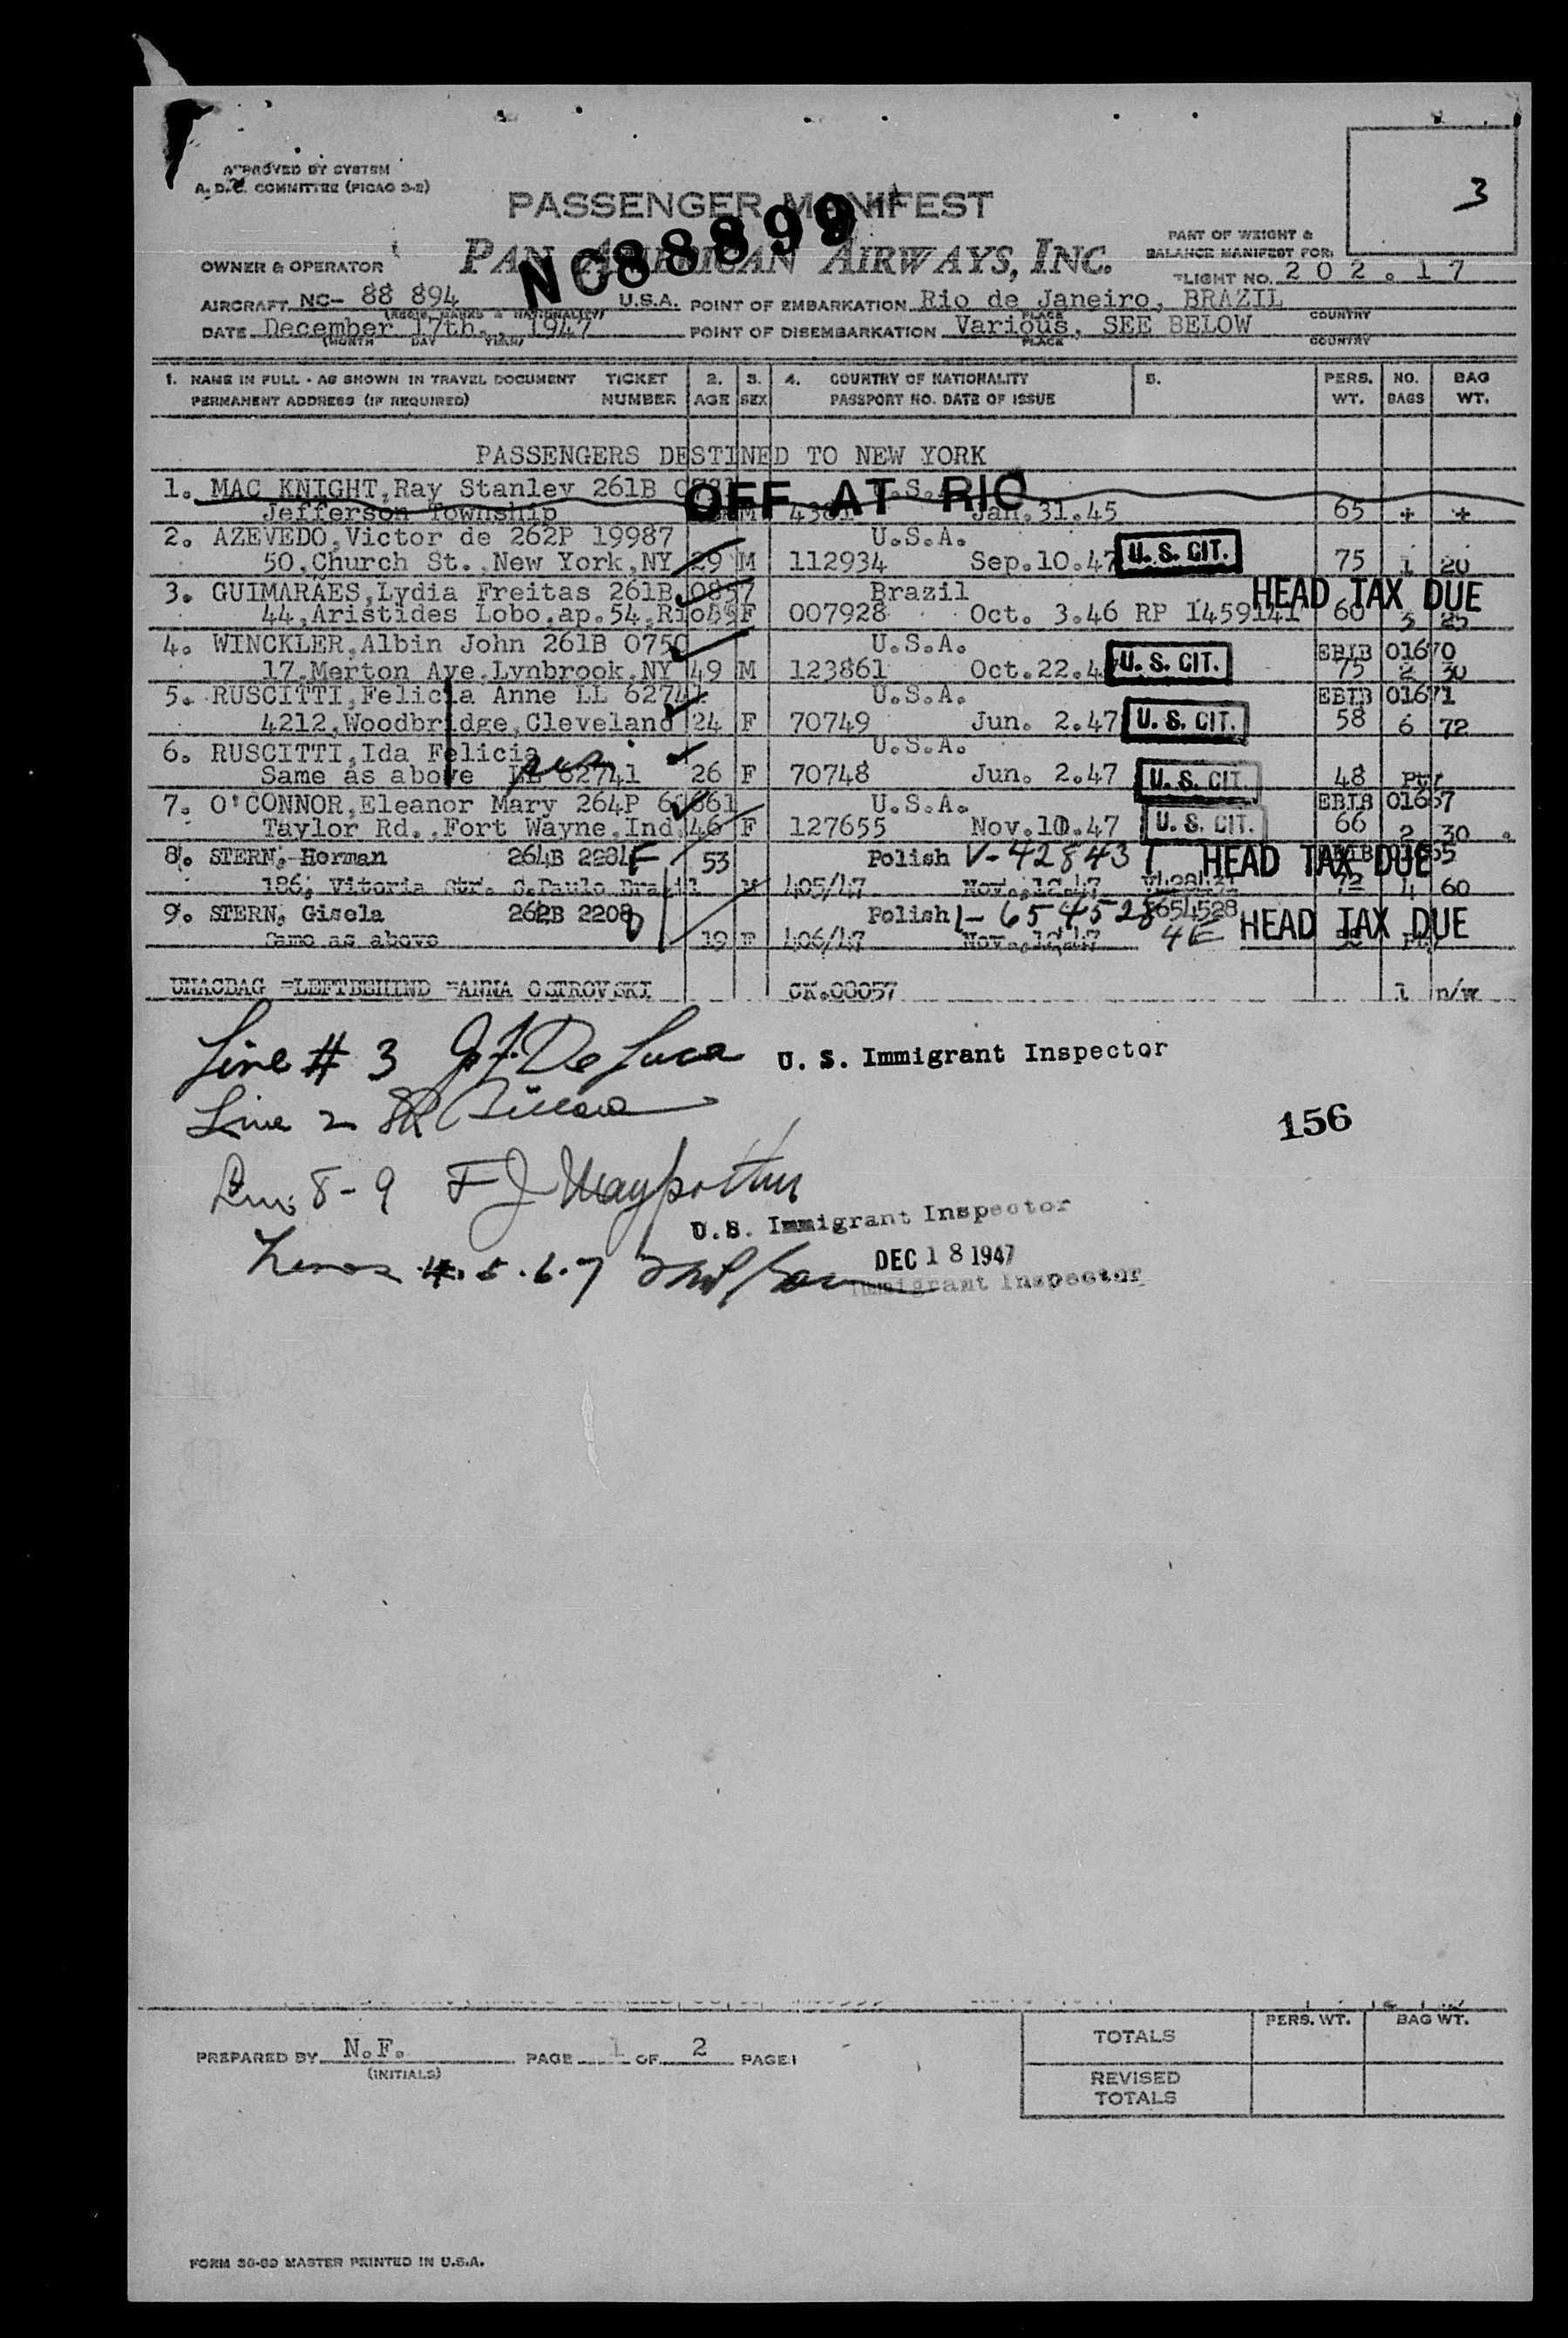 APPROVED BY SYSTEM
A. D. C. COMMITTEE (PICAO 3-2)
3
PASSENGER MANIFEST
NC88899
PART OF WEIGHT &
BALANCE MANIFEST FOR:
OWNER & OPERATOR PAN AMERICAN AIRWAYS, INC.
FLIGHT NO. 202.17
AIRCRAFT NC- 88 894 U.S.A. POINT OF EMBARKATION Rio de Janeiro, BRAZIL
(REGIS. MARKS & NATIONALITY) PLACE COUNTRY
DATE December 17th., 1947 POINT OF DISEMBARKATION Various, SEE BELOW
(MONTH DAY YEAR) PLACE COUNTRY
1. NAME IN FULL - AS SHOWN IN TRAVEL DOCUMENT TICKET 2. 3. 4. COUNTRY OF NATIONALITY 5. PERS. NO. BAG
PERMANENT ADDRESS (IF REQUIRED) NUMBER AGE SEX PASSPORT NO. DATE OF ISSUE WT. BAGS WT.
PASSENGERS DESTINED TO NEW YORK
1. MAC KNIGHT,Ray Stanley 261B U.S.A.
OFF AT RIO
Jefferson Township M 4381 Jan.31.45 65 + +
2. AZEVEDO,Victor de 262P 19987 U.S.A.
50,Church St.,New York,NY 29 M 112934 Sep.10.47 U. S. CIT. 75 1 20
3. GUIMARÃES,Lydia Freitas 261B 0857 Brazil HEAD TAX DUE
44,Aristides Lobo,ap.54,Rio F 007928 Oct. 3.46 RP 1459141 60 3 25
4. WINCKLER,Albin John 261B 0750 U.S.A. EBIB 01670
17,Merton Ave.Lynbrook,NY 49 M 123861 Oct.22.4 U. S. CIT. 75 2 30
5. RUSCITTI,Felicia Anne LL 62741 U.S.A. EBIB 01671
4212,Woodbridge,Cleveland 24 F 70749 Jun. 2.47 U. S. CIT. 58 6 72
6. RUSCITTI,Ida Felicia U.S.A.
Same as above LL 62741 26 F 70748 Jun. 2.47 U. S. CIT. 48 Pty
7. O'CONNOR,Eleanor Mary 264P U.S.A. EBIB 01667
Taylor Rd.,Fort Wayne,Ind. 46 F 127655 Nov.10.47 U. S. CIT. 66 2 30
8. STERN, Herman 264B 53 Polish V-428431 HEAD TAX DUE
186, Vitoria Str. S.Paulo Brazil M 405/47 Nov.,12.47 V428431 72 4 60
9. STERN, Gisela 262B Polish 1-654528 654528
Same as above 19 F 406/47 Nov.,12.47 4E HEAD TAX DUE
UNACBAG =LEFTBEHIND =ANNA OSTROVSKI CK.00057 1 n/w
Line # 3 J.F. De Luca U. S. Immigrant Inspector
Line 2
156
8-9 F J
U.S. Immigrant Inspector
Lines 4.5.6.7
DEC 18 1947
Immigrant Inspector
PREPARED BY N.F. PAGE 1 OF 2 PAGE
(INITIALS)
PERS. WT. BAG WT.
TOTALS
REVISED
TOTALS
FORM 36-80 MASTER PRINTED IN U.S.A.